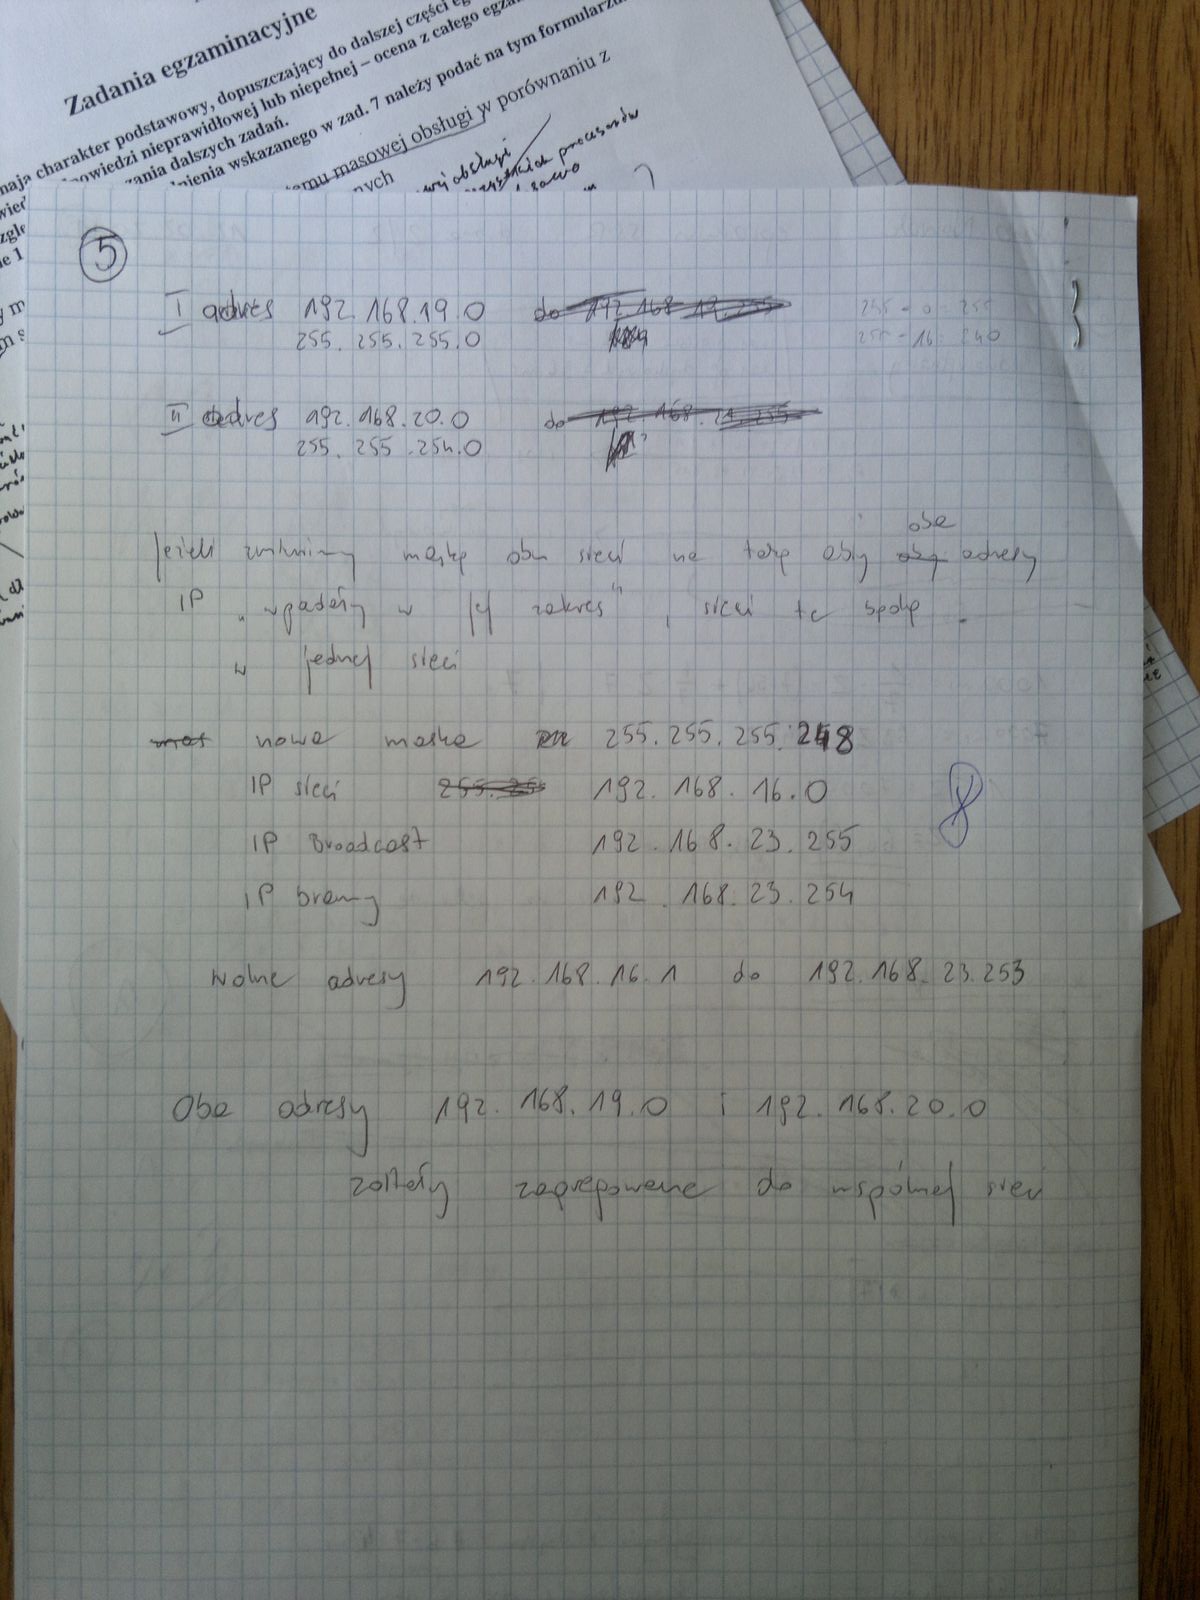 Zadania egzaminacyjne
mają charakter podstawowy, dopuszczający do dalszej części
odpowiedzi nieprawidłowej lub niepełnej – ocena z całego
zania dalszych zadań.
nienia wskazanego w zad. 7 należy podać na tym formularzu
temu masowej obsługi w porównaniu z
nych
obsługi
procesorów
5
I adres 192.168.19.0 do 192.168.19.255
255.255.255.0
255 - 0 = 255
255 - 16 = 240
II adres 192.168.20.0 do 192.168.21.255
255.255.254.0
Jeżeli zmienimy maskę obu sieci na taką aby oba adresy
IP „wpadały w jej zakres", sieci te będą
w jednej sieci
nowa maska 255.255.255.248
IP sieci 192.168.16.0
8
IP Broadcast 192.168.23.255
IP bramy 192.168.23.254
Wolne adresy 192.168.16.1 do 192.168.23.253
Oba adresy 192.168.19.0 i 192.168.20.0
zostały zagregowane do wspólnej sieci